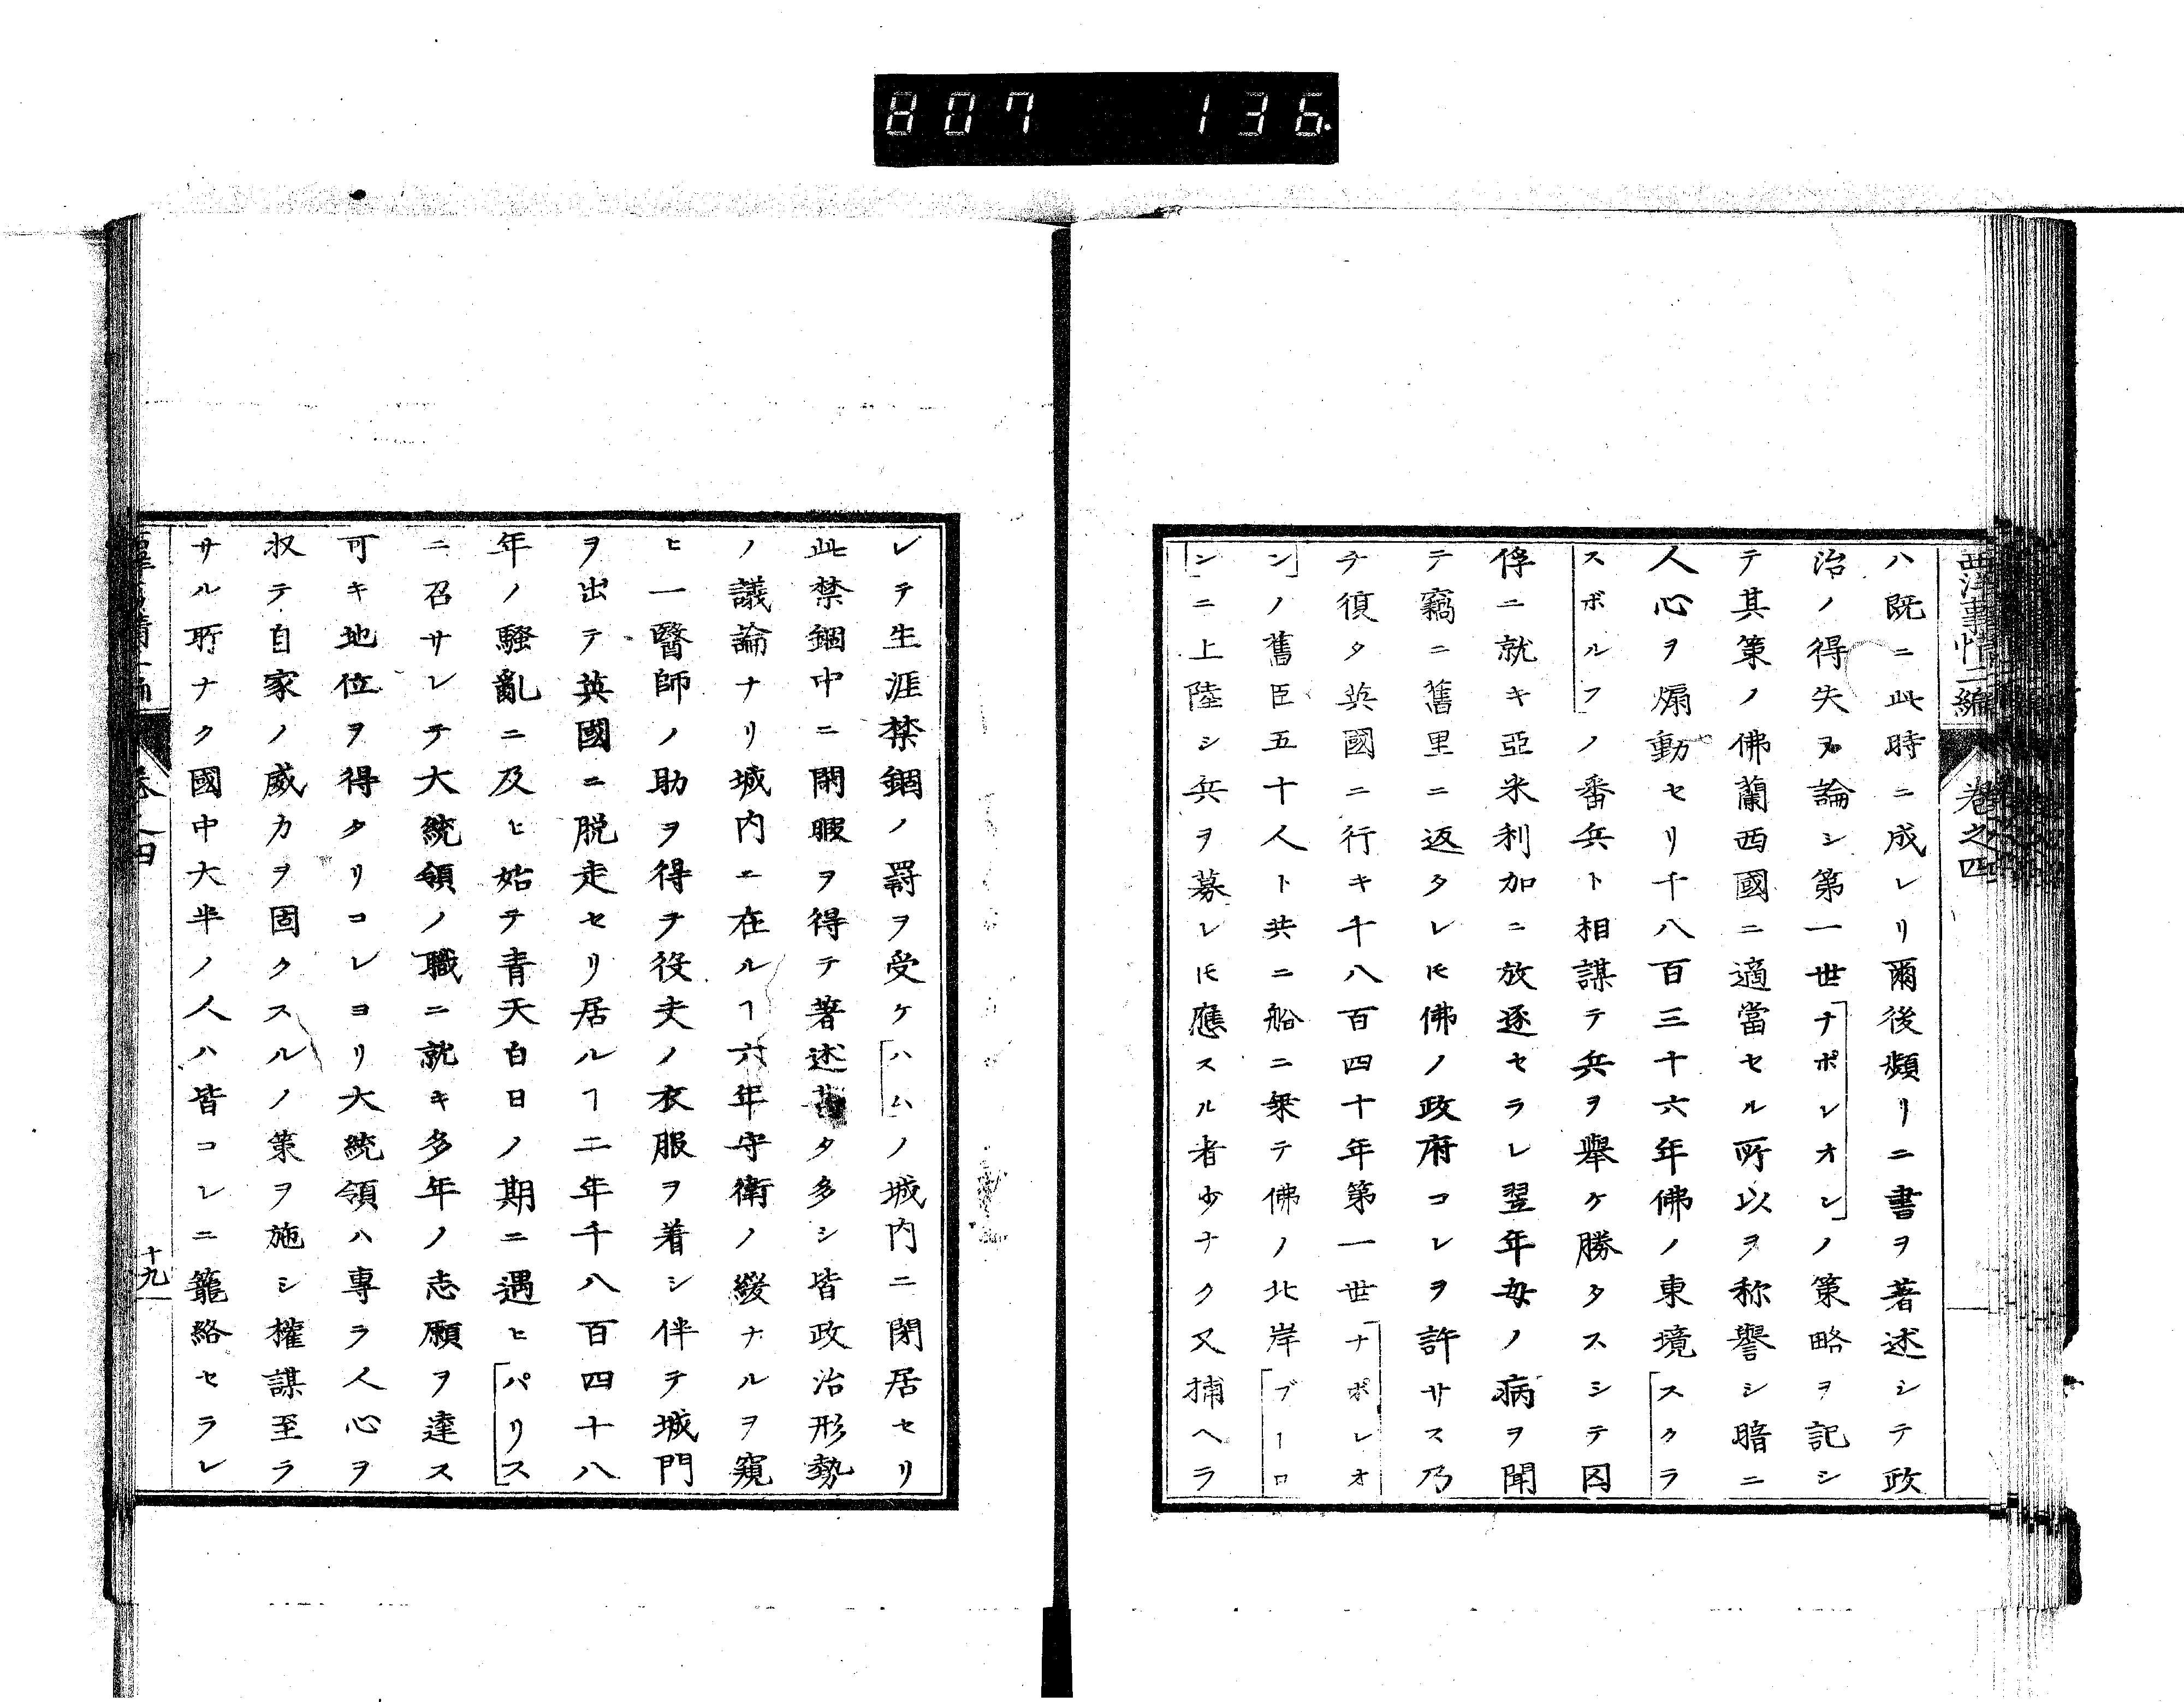 807 136
西洋事情二編 卷之四
ハ既ニ此時ニ成レリ爾後頻リニ書ヲ著述シテ政
治ノ得失ヲ論シ第一世「ナポレオレ」ノ策略ヲ記シ
テ其策ノ佛蘭西國ニ適當セル所以ヲ称譽シ暗ニ
人心ヲ煽動セリ千八百三十六年佛ノ東境「スクラ
スボルフ」ノ番兵ト相謀テ兵ヲ舉ケ勝タスシテ囚
俘ニ就キ亞米利加ニ放逐セラレ翌年母ノ病ヲ聞
テ竊ニ舊里ニ返タレ𪜈佛ノ政府コレヲ許サス乃
チ復タ英國ニ行キ千八百四十年第一世「ナポレオ
ン」ノ舊臣五十人ト共ニ船ニ乗テ佛ノ北岸「ブーロ
ン」ニ上陸シ兵ヲ募レ𪜈應スル者少ナク又捕ヘラ
レテ生涯禁錮ノ罸ヲ受ケ「ハム」ノ城内ニ閉居セリ
此禁錮中ニ閑暇ヲ得テ著述甚タ多シ皆政治形勢
ノ議論ナリ城内ニ在ルヿ六年守衛ノ緩ナルヲ窺
ヒ一醫師ノ助ヲ得テ役夫ノ衣服ヲ着シ伴テ城門
ヲ出テ英國ニ脱走セリ居ルヿ二年千八百四十八
年ノ騒亂ニ及ヒ始テ青天白日ノ期ニ遇ヒ「パリス」
ニ召サレテ大統領ノ職ニ就キ多年ノ志願ヲ達ス
可キ地位ヲ得タリコレヨリ大統領ハ專ラ人心ヲ
收テ自家ノ威力ヲ固クスルノ策ヲ施シ權謀至ラ
サル所ナク國中大半ノ人ハ皆コレニ籠絡セラレ
卷之四 十九